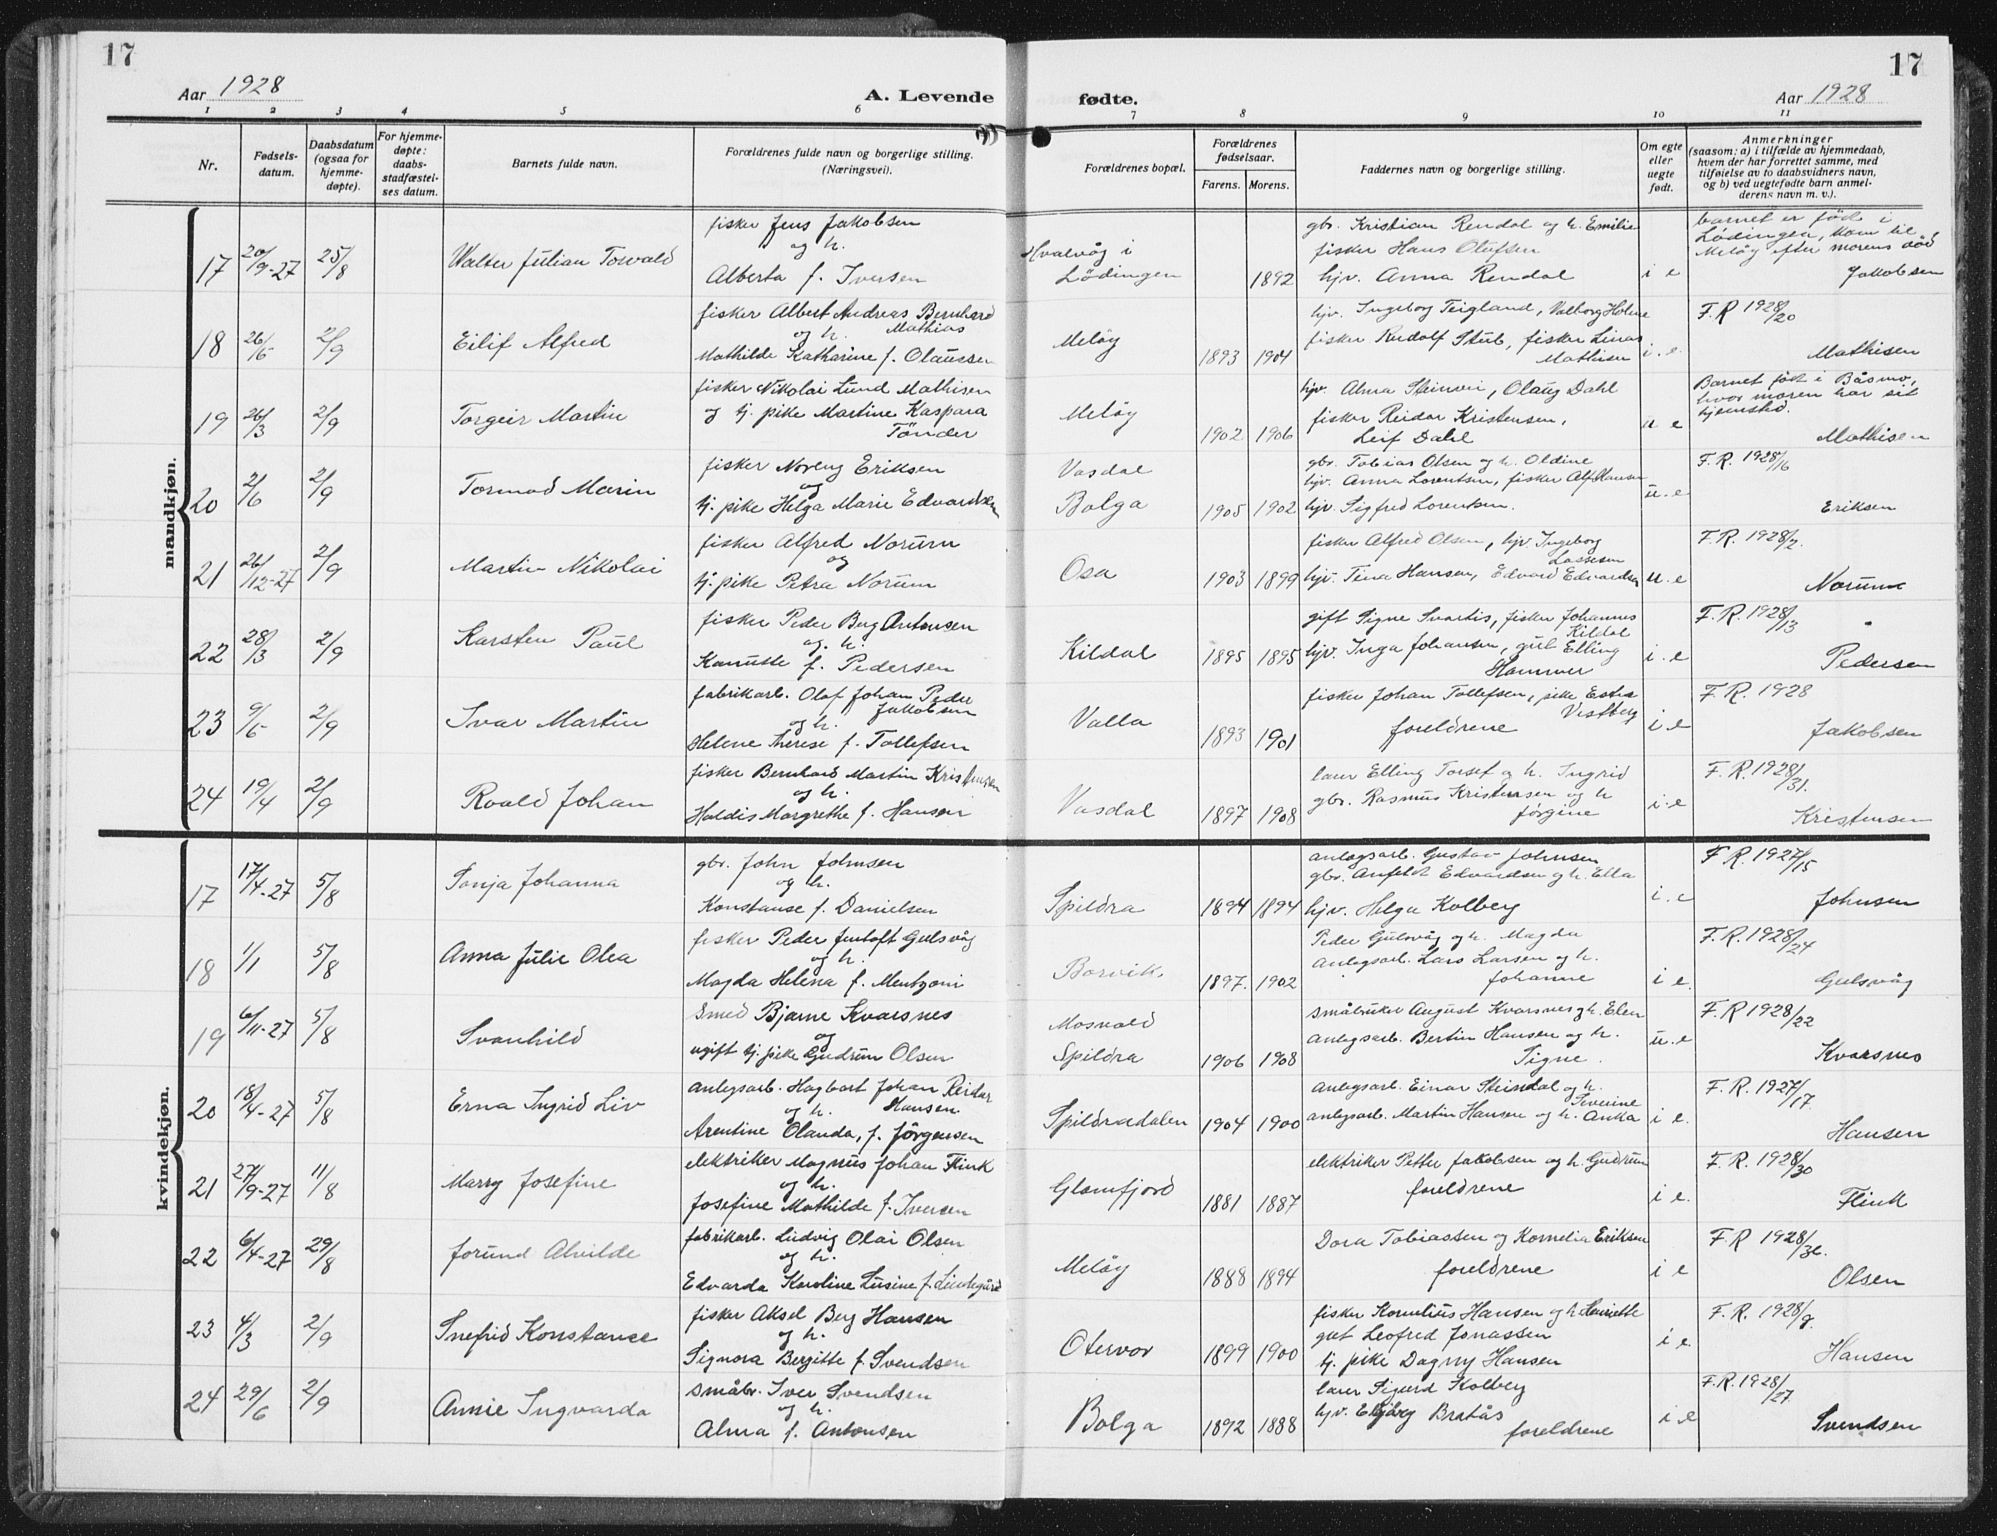 17
17
Aar 1928
A. Levende
fødte.
Aar 1928
1 2 3 4 5 6 7 8 9 10 11
Nr.
Fødsels-
datum.
Daabsdatum
(ogsaa for
hjemme-
døpte).
For hjemme-
døpte:
daabs-
stadfæstel-
ses datum.
Barnets fulde navn.
Forældrenes fulde navn og borgerlige stilling.
(Næringsvei).
Forældrenes bopæl.
Forældrenes
fødselsaar.
Farens. Morens.
Faddernes navn og borgerlige stilling.
Om egte
eller
uegte
født.
Anmerkninger
(saasom: a) i tilfælde av hjemmedaab,
hvem der har forrettet samme, med
tilføielse av to daabsvidners navn,
og b) ved uegtefødte barn anmel-
derens navn m. v.).
mandkjøn.
17 20/9-27 25/8 Walter Julian Torvald
fisker Jens Jakobsen
og h.
Alberta f. Iversen
Hvalvåg i
Lödingen
1892
gbr. Kristian Rendal og h. Emilie
fisker Hans Olufsen
hjv. Anna Rendal
i e
barnet er födt i
Lödingen, kom til
Melöy efter morens död
Jakobsen
18 26/5 2/9 Eilif Alfred
fisker Albert Andreas Bernhard
og h. Mathias
Mathilde Katharine f. Olaussen
Melöy
1893 1904
hjv. Ingeborg Teigland, Valborg Holene
fisker Rudolf Stub, fisker Linas
Mathisen
i. e.
F.R 1928/20
Mathisen
19 26/3 2/9 Torgeir Martin
fisker Nikolai Lund Mathisen
og tj. pike Martine Kaspara
Tönder
Melöy
1902 1906
hjv. Alma Steinvei, Olaug Dahl
fisker Reidar Kristensen,
Leif Dahl
u e
Barnet födt i Båsmo,
hvor moren har sit
hjemsted.
Mathisen
20 2/6 2/9 Tormod Marin
fisker Noreng Eriksen
og
tj. pike Helga Marie Edvardsen
Vasdal
Bolga
1905 1902
gbr. Tobias Olsen og h. Oldine
hjv. Anna Lorentsen, fisker Alf Hansen
hjv. Sigfred Lorentsen.
u. e
F.R. 1928/16
Eriksen
21 26/12-27 2/9 Martin Nikolai
fisker Alfred Norum
og
tj. pike Petra Norum
Osa
1903 1899
fisker Alfred Olsen, hjv. Ingeborg
Lassesen
hjv. Tina Hansen, Edvard Edvardsen
u. e
F.R. 1928/2.
Norum
22 28/3 2/9 Karsten Paul
fisker Peder Berg Antonsen
og. h.
Kanutte f. Pedersen
Kildal
1895 1895
gift Signe Svartis, fisker Johannes
Kildal
hjv. Inga Johansen, gut Elling
Hammer
i. e
F.R. 1928/13
Pedersen
23 9/5 2/9 Ivar Martin
fabrikarb. Olaf Johan Peder
Jakobsen
og h.
Helene Therese f. Tollefsen
Valla
1893 1901
fisker Johan Tollefsen, pike Ester
Vestberg
foreldrene
i e
F.R. 1928
Jakobsen
24 19/4 2/9 Roald Johan
fisker Bernhard Martin Kristensen
og h.
Haldis Margrethe f. Hansen
Vasdal
1897 1908
lærer Elling Torsef og h. Ingrid
gbr. Rasmus Kristensen og h
Jörgine
i. e
F.R. 1928/31.
Kristensen
kvindekjøn.
17 17/4-27 5/8 Sonja Johanna
gbr. John Johnsen
og h.
Konstanse f. Danielsen
Spildra
1894 1894
anlegsarb. Gustav Johnsen
gbr. Anfeldt Edvardsen og h. Ella
hjv. Helga Kolberg
i. e
F.R. 1927/15
Johnsen
18 1/1 5/8 Anna Julie Olea
fisker Peder Jentoft Gulsvåg
og h.
Magda Helena f. Mentzoni
Borvik
1897. 1902
Peder Gulsvåg og h. Magda
anlegsarb. Lars Larsen og h.
Johanne
i e.
F.R. 1928/24
Gulsvåg
19 6/11-27 5/8 Svanhild
smed Bjarne Kvarsnes
og
ugift tj. pike Gudrun Olsen
Mosvold
Spildra
1906 1908
småbruker August Kvarsnes og h. Elen
anlegsarb. Bertin Hansen og h.
Signe.
u. e
F.R 1928/22
Kvarsnes
20 18/4-27 5/8 Erna Ingrid Liv
anlegsarb. Hagbart Johan Reidar
og h. Hansen
Arentine Olanda, f. Jörgensen
Spildradalen
1904 1900
anlegsarb. Einar Steindal og h.
Severine
anlegsarb. Martin Hansen og h. Anna
i e.
F.R. 1927/17
Hansen
21 27/9-27 11/8 Marry Josefine
elektriker Magnus Johan Flink
og h.
Josefine Mathilde f. Iversen
Glomfjord
1881 1887
elektriker Petter Jakobsen og h. Gudrun
foreldrene
i e.
F.R. 1928/30
Flink
22 6/4-27 29/8 Jorund Alvilde
fabrikarb. Ludvig Olai Olsen
og h.
Edvarda Karoline Lusine f.
Melöy
1888 1894
Dora Tobiassen og Kornelia Eriksen
foreldrene
i e
F.R 1928/32.
Olsen
23 4/3 2/9 Snefrid Konstance
fisker Aksel Berg Hansen
og h.
Signora Bergitte f. Svendsen
Otervor
1899 1900
fisker Kornelius Hansen og h. Henriette
gut Leofred Jonassen
tj. pike Dagny Hansen
i e.
F.R. 1928/8.
Hansen
24 29/6 2/9 Annie Ingvarda
småbr. Iver Svendsen
og h.
Alma f. Antonsen
Bolga
1892 1888
lærer Sigurd Kolberg
hjv. Elbjörg Bratås
foreldrene
i e
F.R. 1928/27
Svendsen